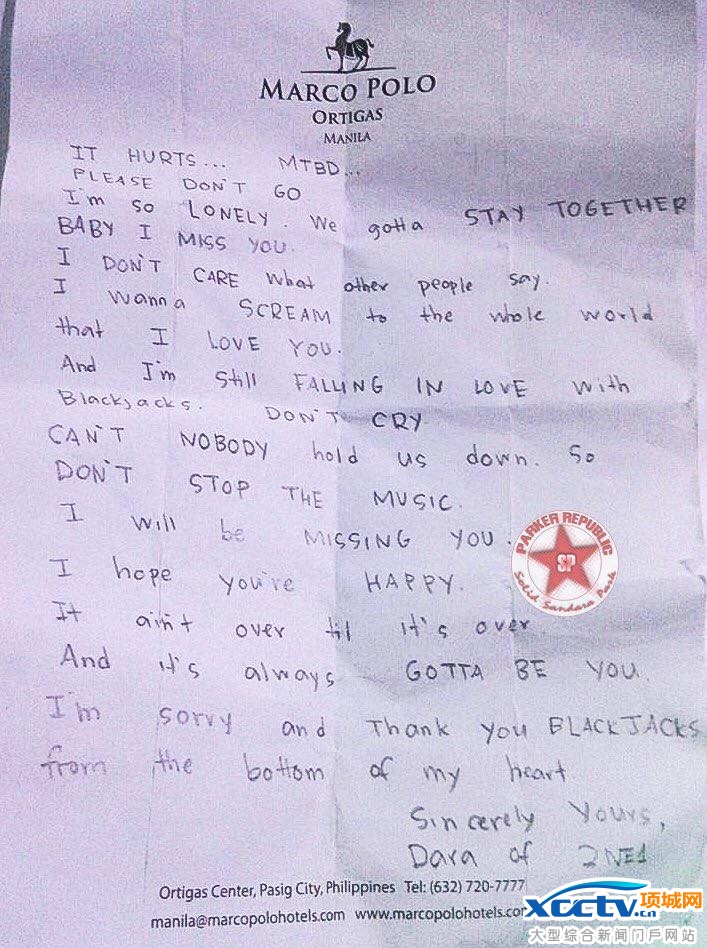 MARCO POLO
ORTIGAS
MANILA
IT HURTS... MTBD...
PLEASE DON'T GO
I'm so LONELY. We gotta STAY TOGETHER
BABY I MISS YOU.
I DON'T CARE what other people say.
I wanna SCREAM to the whole world
that I LOVE YOU.
And I'm still FALLING IN LOVE with
Blackjacks. DON'T CRY
CAN'T NOBODY hold us down. So
DON'T STOP THE MUSIC.
I will be MISSING YOU.
PARKER REPUBLIC
SP
Solid Sandara Park
I hope you're HAPPY.
It ain't over til it's over.
And it's always GOTTA BE YOU.
I'm sorry and Thank you BLACKJACKS
from the bottom of my heart
Sincerely Yours,
Dara of 2NE1
Ortigas Center, Pasig City, Philippines Tel: (632) 720-7777
manila@marcopolohotels.com www.marcopolohotels.co
xcctv.cn 项城网
大型综合新闻门戶网站